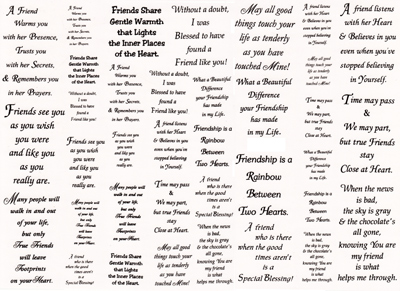 A Friend
Warms you
with her Presence,
Trusts you
with her Secrets,
& Remembers you
in her Prayers.
Friends see you
as you wish
you were
and like you
as you
really are.
Many people will
walk in and out
of your life,
but only
True Friends
will leave
Footprints
on your Heart.
A Friend
Warms you
with her Presence,
Trusts you
with her Secrets,
& Remembers you
in her Prayers.
Friends Share
Gentle Warmth
that Lights
the Inner Places
of the Heart.
Without a doubt,
I was
Blessed to have
found a
Friend like you!
Friends see you
as you wish
you were
and like you
as you
really are.
Many people will
walk in and out
of your life,
but only
True Friends
will leave
Footprints
on your Heart.
A friend
who is there
when the good
times aren't
is a
Special Blessing!
Friends Share
Gentle Warmth
that Lights
the Inner Places
of the Heart.
A Friend
Warms you
with her Presence,
Trusts you
with her Secrets,
& Remembers you
in her Prayers.
Friends see you
as you wish
you were
and like you
as you
really are.
Many people will
walk in and out
of your life,
but only
True Friends
will leave
Footprints
on your Heart.
Friends Share
Gentle Warmth
that Lights
the Inner Places
of the Heart.
Without a doubt,
I was
Blessed to have
found a
Friend like you!
Without a doubt,
I was
Blessed to have
found a
Friend like you!
A friend listens
with her Heart
& Believes in you
even when you've
stopped believing
in Yourself.
Time may pass
&
We may part,
but true Friends
stay
Close at Heart.
May all good
things touch your
life as tenderly
as you have
touched Mine!
What a Beautiful
Difference
your Friendship
has made
in my Life.
Friendship is a
Rainbow
Between
Two Hearts.
A friend
who is there
when the good
times aren't
is a
Special Blessing!
When the news
is bad,
the sky is gray
& the chocolate's
all gone,
knowing You are
my Friend
is what
helps me through.
May all good
things touch your
life as tenderly
as you have
touched Mine!
What a Beautiful
Difference
your Friendship
has made
in my Life.
Friendship is a
Rainbow
Between
Two Hearts.
A friend
who is there
when the good
times aren't
is a
Special Blessing!
A friend listens
with her Heart
& Believes in you
even when you've
stopped believing
in Yourself.
May all good
things touch your
life as tenderly
as you have
touched Mine!
Time may pass
&
We may part,
but true Friends
stay
Close at Heart.
What a Beautiful
Difference
your Friendship
has made
in my Life.
Friendship is a
Rainbow
Between
Two Hearts.
A friend
who is there
when the good
times aren't
is a
Special Blessing!
When the news
is bad,
the sky is gray
& the chocolate's
all gone,
knowing You are
my Friend
is what
helps me through.
A friend listens
with her Heart
& Believes in you
even when you've
stopped believing
in Yourself.
Time may pass
&
We may part,
but true Friends
stay
Close at Heart.
When the news
is bad,
the sky is gray
& the chocolate's
all gone,
knowing You are
my Friend
is what
helps me through.